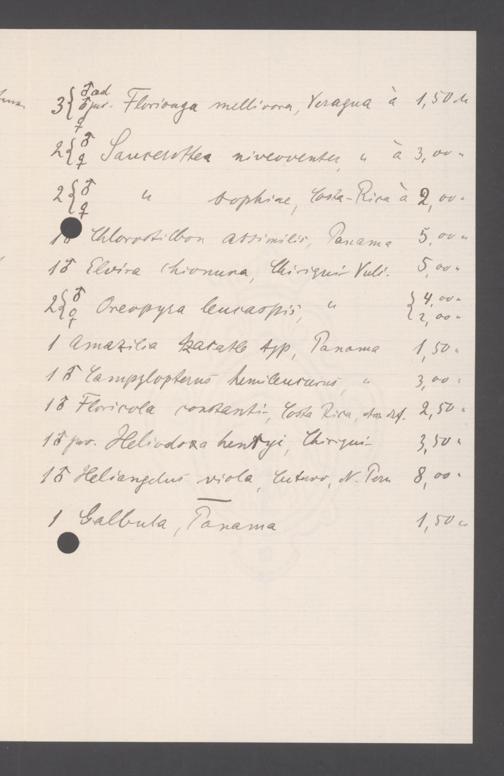 3 { ♂ ad ♂ juv. ♀ Florisuga mellivora, Veragua à 1,50
2 { ♂ ♀ Saucerottea niveoventer, " à 3,00 "
2 { ♂ ♀ " sophiae, Costa-Rica à 2,00 "
1 ♂ Chlorostilbon assimilis, Panama 5,00 "
1 ♂ Elvira chionura, Chiriqui Vulc. 5,00 "
2 { ♂ ♀ Oreopyra leucaspis, " { 4,00 " 2,00 "
1 Amazilia tzacatl typ, Panama 1,50 "
1 ♂ Campylopterus hemileucurus, " 3,00 "
1 ♂ Floricola constanti, Costa Rica, 2,50 "
1 ♂ juv. Heliodoxa henryi, Chiriqui 3,50 "
1 ♂ Heliangelus viola, Cutervo, N. Peru 8,00 "
1 Galbula, Panama 1,50 "